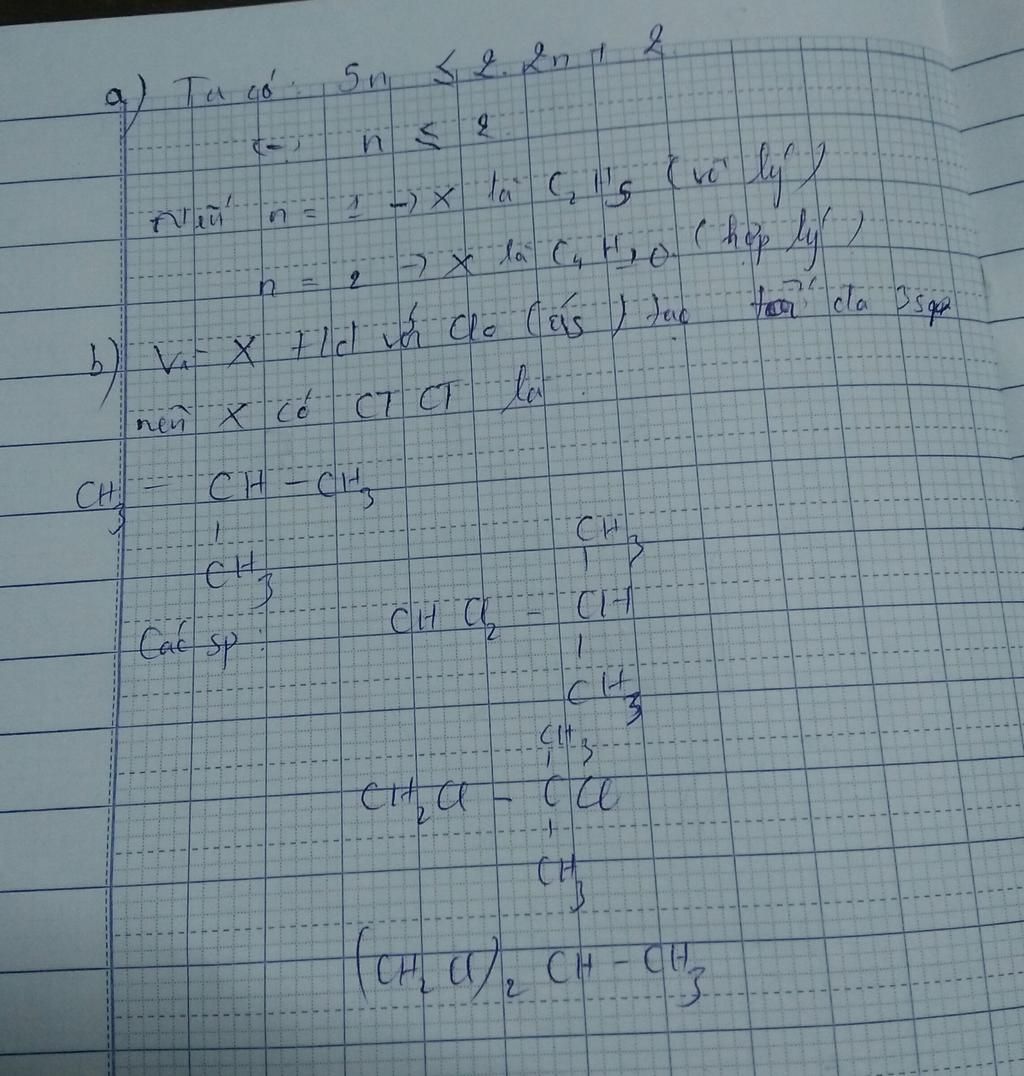 a) Ta có: 5n ≤ 2.2n + 2
n ≤ 2
Nếu n = 1 → X là C2H5 (vô lý)
n = 2 → X là C4H10 (hợp lý)
b) Vì X t/d với Clo (ás) tạo tối đa 3sp
nên X có CTCT là:
CH3 - CH - CH3
CH3
CH3
Các sp: CHCl2 - CH
CH3
CH3
CH2Cl - CCl
CH3
(CH2Cl)2 CH - CH3